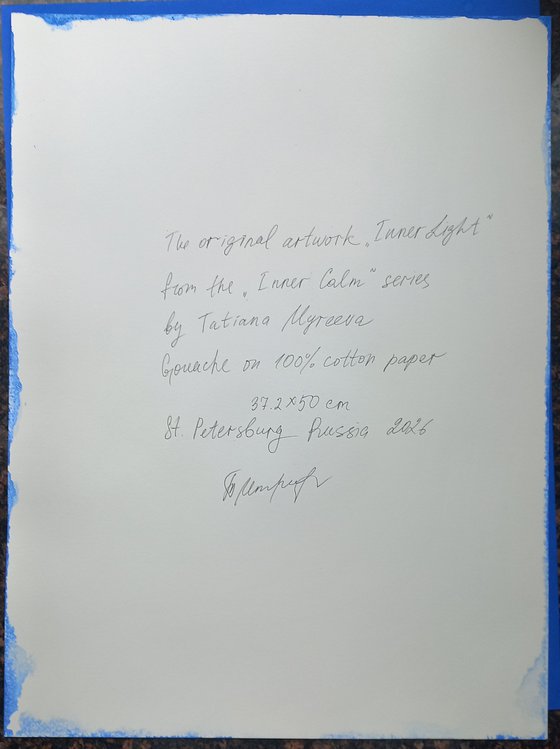 The original artwork „Inner Light"
from the „Inner Calm" series
by Tatiana Myreeva
Gouache on 100% cotton paper
37.2×50 cm
St. Petersburg Russia 2026